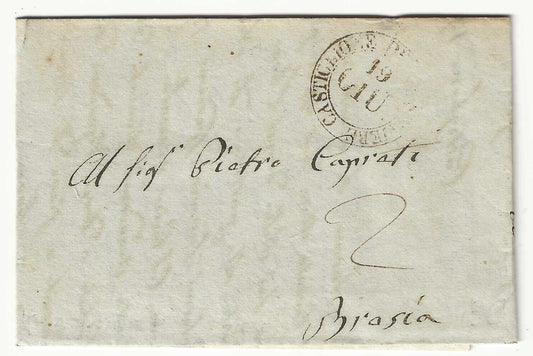 CASTIGLIONE DE
19
GIU
Al Sig.r Pietro Caprati
2
Brescia